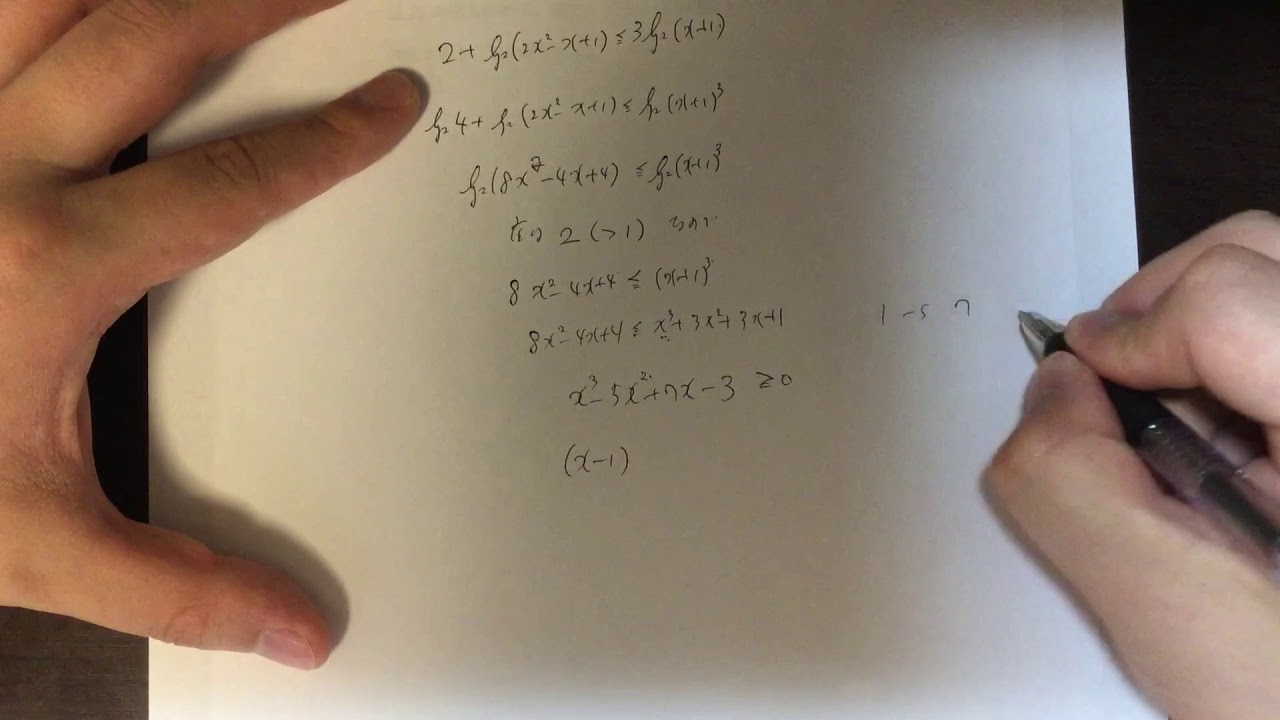 2 + log₂(2x² - x + 1) ≦ 3log₂(x+1)
log₂4 + log₂(2x² - x + 1) ≦ log₂(x+1)³
log₂(8x² - 4x + 4) ≦ log₂(x+1)³
2 (>1)
8x² - 4x + 4 ≦ (x+1)³
8x² - 4x + 4 ≦ x³ + 3x² + 3x + 1
1 -5 7
x³ - 5x² + 7x - 3 ≧ 0
(x-1)